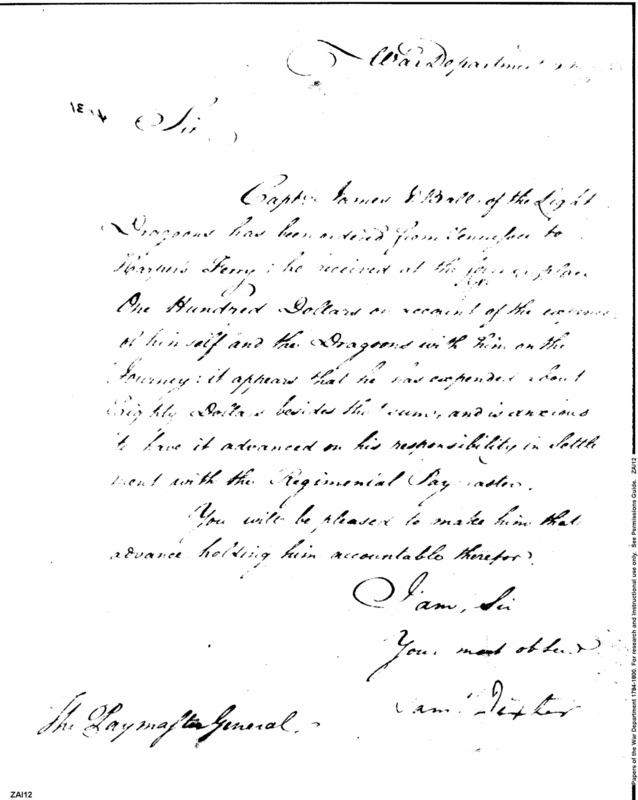 War Department
Sir
Capt. James V. Ball of the Light
Dragoons has been ordered from Tennessee to
Harper's Ferry: he received at the former place
One Hundred Dollars on account of the expences
of himself and the Dragoons with him on the
Journey: it appears that he has expended about
Eighty Dollars besides that sum, and is anxious
to have it advanced on his responsibility in Settle
ment with the Regimental Paymaster.
You will be pleased to make him that
advance holding him accountable therefor.
I am, Sir
Your most obedt
Saml Dexter
The Paymaster General.
ZAI12
Papers of the War Department 1784-1800. For research and instructional use only. See Permissions Guide. ZAI12